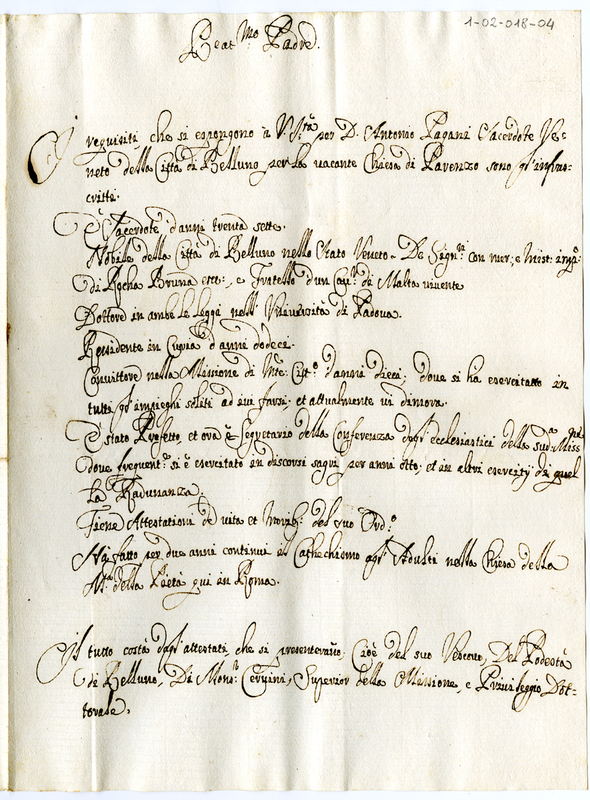 1-02-018-04
Beat.mo Padre.
I requisiti che si espongono à V. S.tà per D. Antonio Pagani Sacerdote Ve-
neto della Città di Belluno per la vacante Chiesa di Parenzo sono gl'infra-
critti.
È Sacerdote d'anni trenta sette.
Nobile della Città di Belluno nello Stato Veneto. De Sign.ri con mer; e mist: imp:
di Rocha Bruna ett:, e Fratello d'un Cau.r di Malta vivente
Dottore in ambe le leggi nell'Università di Padova.
Residente in Curia d'anni dodeci.
Convittore nella Missione di Mte: Cit.o d'anni dieci, dove si ha esercitatto in
tutti gl'impieghi soliti ad ivi farsi; et attualmente vi dimora.
È stato Prefetto, et ora è Segretario della Conferenza degl'ecclesiastici della sud.a Miss
dove frequent.e si è esercitato in discorsi sagri per anni otto; et in altri esercitij di quel
la Radunanza.
Tiene Attestationi de vita et morib: del suo Ord.o
Ha fatto per due anni continui il Cathechismo agl'Adulti nella Chiesa della
M.a della Pietà qui in Roma.
Il tutto costa dagl'attestati, che si presenteranno, Cioè del suo Vescovo, Del Podestà
di Belluno, Di Mons.r Cervini, Superior della Missione, e Privileggio Dot-
torale.